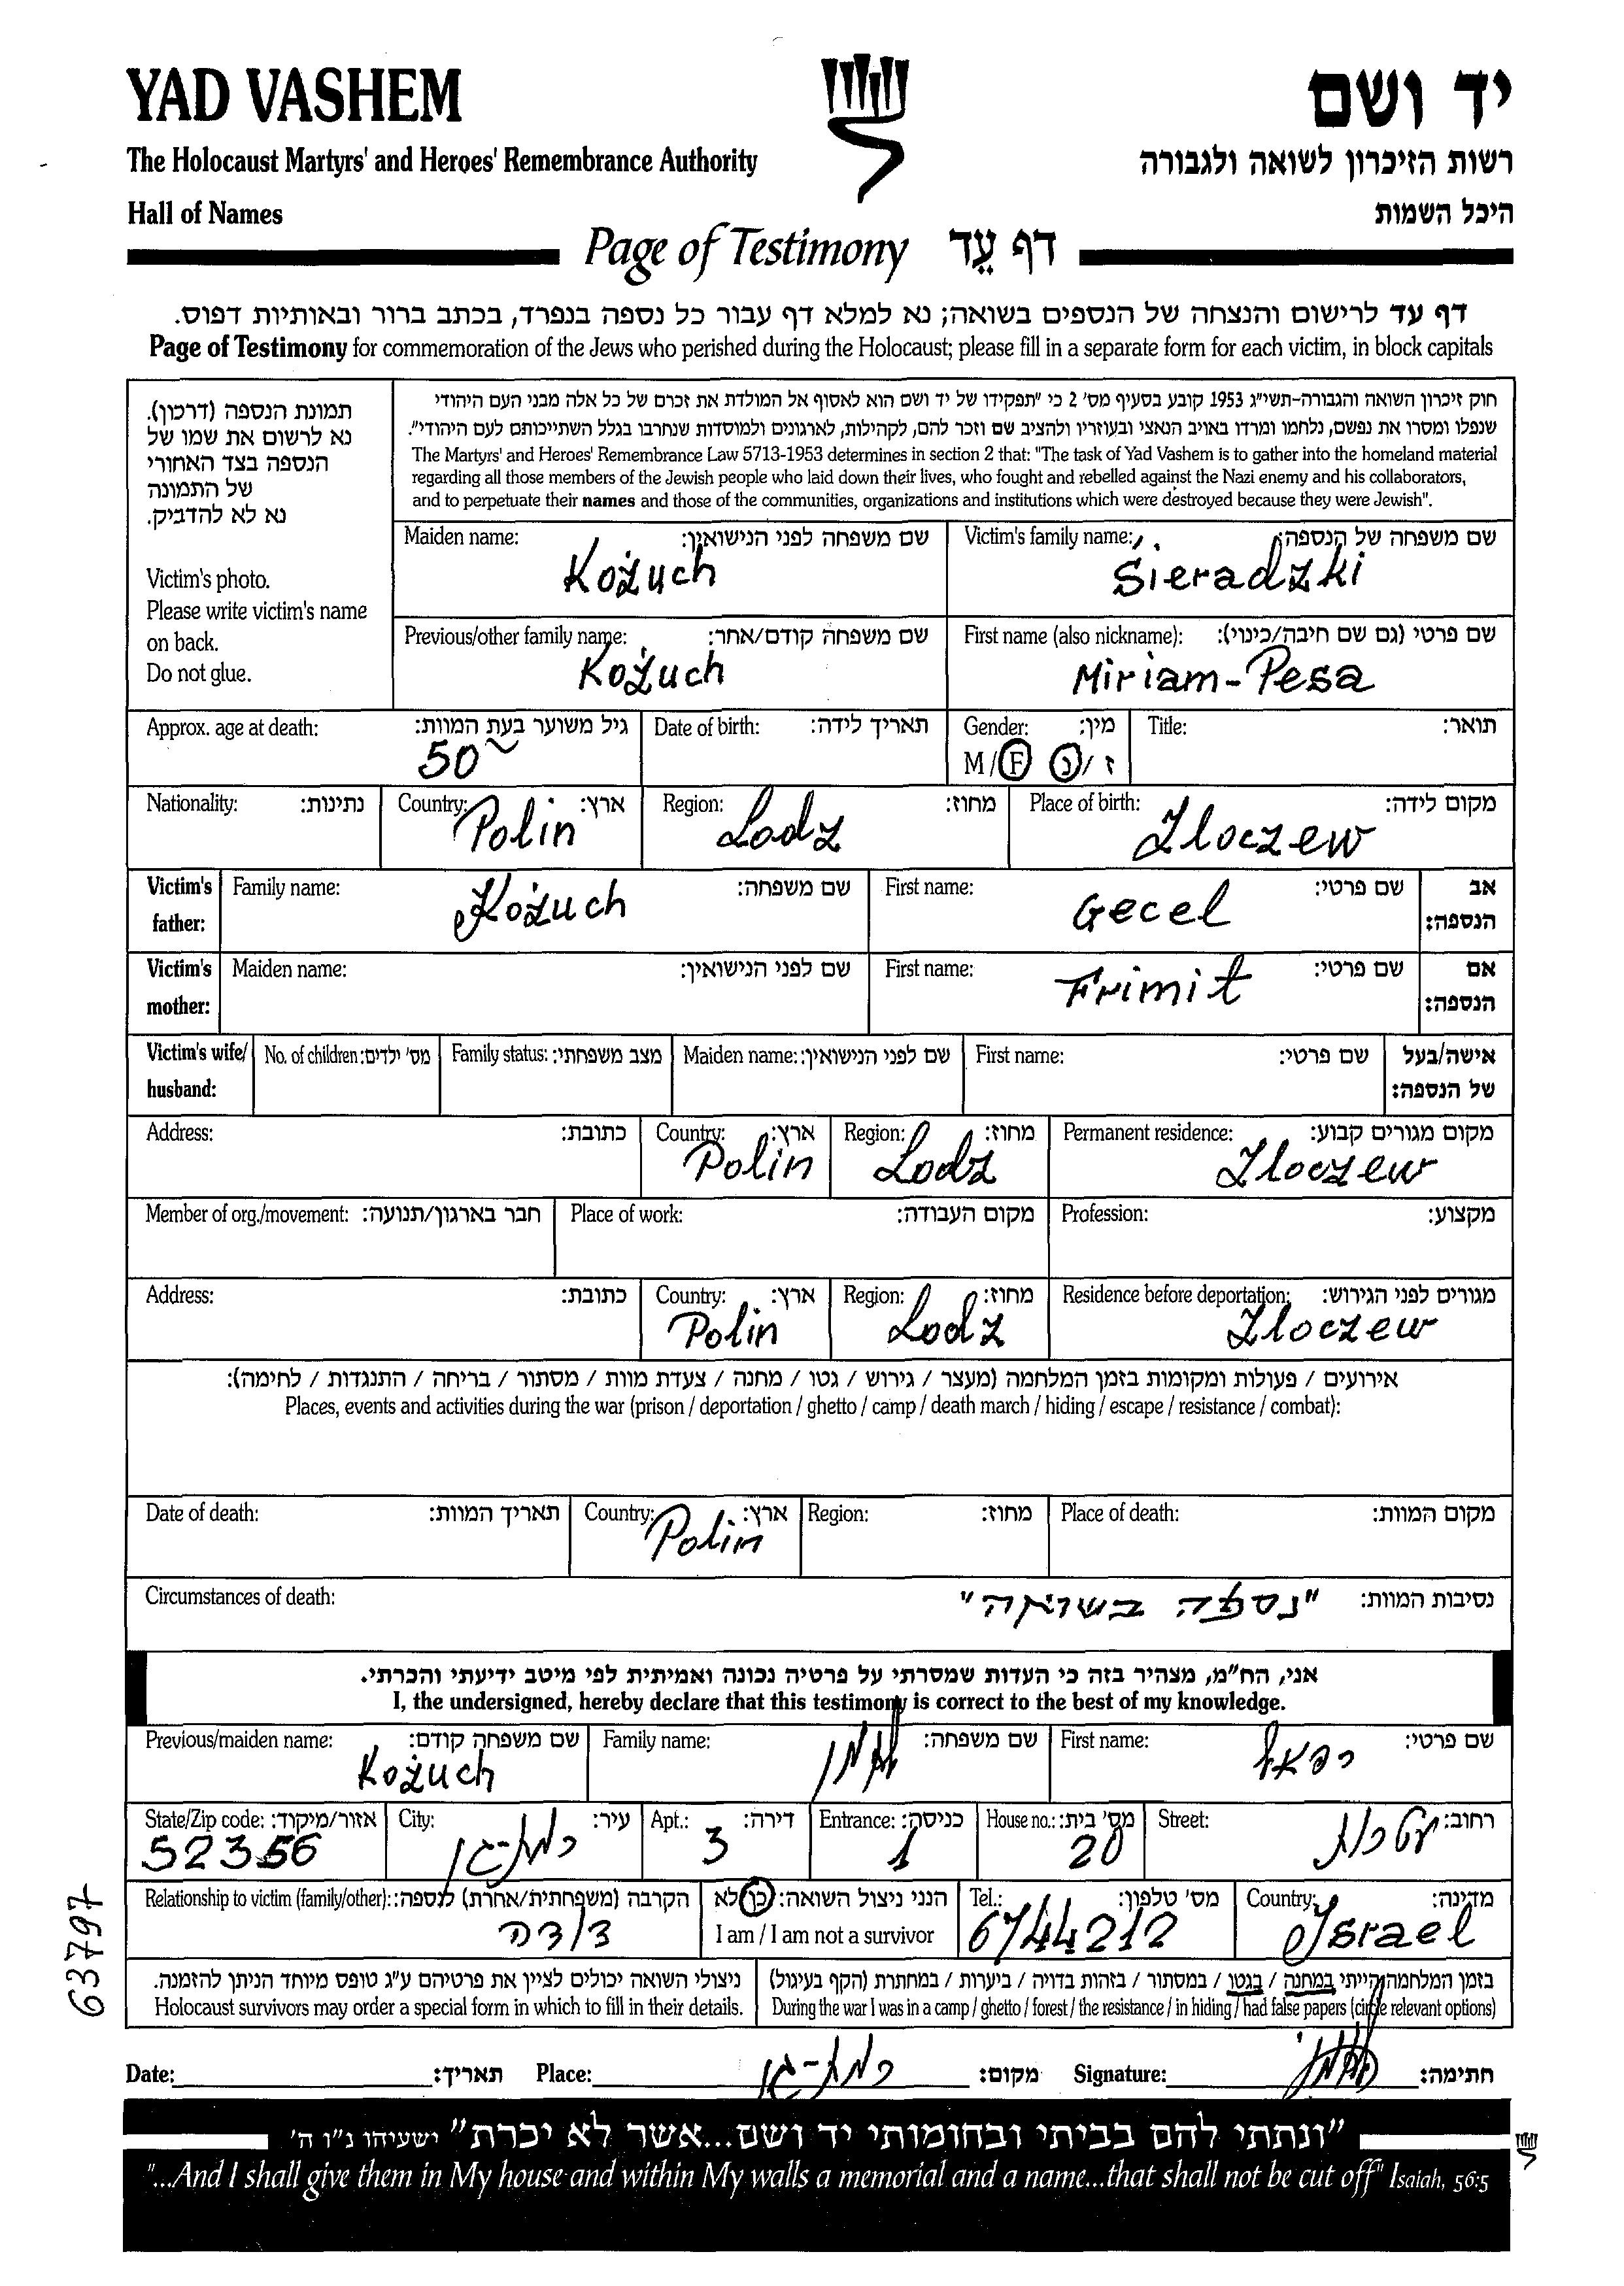 YAD VASHEM
יד ושם
The Holocaust Martyrs' and Heroes' Remembrance Authority
רשות הזיכרון לשואה ולגבורה
Hall of Names
היכל השמות
Page of Testimony דף עֵד
דף עד לרישום והנצחה של הנספים בשואה; נא למלא דף עבור כל נספה בנפרד, בכתב ברור ובאותיות דפוס.
Page of Testimony for commemoration of the Jews who perished during the Holocaust; please fill in a separate form for each victim, in block capitals
תמונת הנספה (דרכון).
נא לרשום את שמו של
הנספה בצד האחורי
של התמונה
נא לא להדביק.
Victim's photo.
Please write victim's name
on back.
Do not glue.
חוק זיכרון השואה והגבורה-תשי"ג 1953 קובע בסעיף מס' 2 כי "תפקידו של יד ושם הוא לאסוף אל המולדת את זכרם של כל אלה מבני העם היהודי
שנפלו ומסרו את נפשם, נלחמו ומרדו באויב הנאצי ובעוזריו ולהציב שם וזכר להם, לקהילות, לארגונים ולמוסדות שנחרבו בגלל השתייכותם לעם היהודי".
The Martyrs' and Heroes' Remembrance Law 5713-1953 determines in section 2 that: "The task of Yad Vashem is to gather into the homeland material
regarding all those members of the Jewish people who laid down their lives, who fought and rebelled against the Nazi enemy and his collaborators,
and to perpetuate their names and those of the communities, organizations and institutions which were destroyed because they were Jewish".
Maiden name: שם משפחה לפני הנישואין:
Kożuch
Victim's family name: שם משפחה של הנספה:
Sieradzki
Previous/other family name: שם משפחה קודם/אחר:
Kożuch
First name (also nickname): שם פרטי (גם שם חיבה/כינוי):
Miriam-Pesa
Approx. age at death: גיל משוער בעת המוות:
50~
Date of birth: תאריך לידה:
Gender: מין:
M / F נ / ז
Title: תואר:
Nationality: נתינות:
Country: ארץ:
Polin
Region: מחוז:
Lodz
Place of birth: מקום לידה:
Zloczew
Victim's father:
Family name: שם משפחה:
Kożuch
First name: שם פרטי:
Gecel
אב הנספה:
Victim's mother:
Maiden name: שם לפני הנישואין:
First name: שם פרטי:
Frimit
אם הנספה:
Victim's wife/ husband:
No. of children: מס' ילדים:
Family status: מצב משפחתי:
Maiden name: שם לפני הנישואין:
First name: שם פרטי:
אישה/בעל של הנספה:
Address: כתובת:
Country: ארץ:
Polin
Region: מחוז:
Lodz
Permanent residence: מקום מגורים קבוע:
Zloczew
Member of org./movement: חבר בארגון/תנועה:
Place of work: מקום העבודה:
Profession: מקצוע:
Address: כתובת:
Country: ארץ:
Polin
Region: מחוז:
Lodz
Residence before deportation: מגורים לפני הגירוש:
Zloczew
אירועים / פעולות ומקומות בזמן המלחמה (מעצר / גירוש / גטו / מחנה / צעדת מוות / מסתור / בריחה / התנגדות / לחימה):
Places, events and activities during the war (prison / deportation / ghetto / camp / death march / hiding / escape / resistance / combat):
Date of death: תאריך המוות:
Country: ארץ:
Polin
Region: מחוז:
Place of death: מקום המוות:
Circumstances of death: נסיבות המוות:
"נספה בשואה"
אני, הח"מ, מצהיר בזה כי העדות שמסרתי על פרטיה נכונה ואמיתית לפי מיטב ידיעתי והכרתי.
I, the undersigned, hereby declare that this testimony is correct to the best of my knowledge.
Previous/maiden name: שם משפחה קודם:
Kożuch
Family name: שם משפחה:
First name: שם פרטי:
רפאל
State/Zip code: אזור/מיקוד:
52356
City: עיר:
רמת-גן
Apt.: דירה:
3
Entrance: כניסה:
1
House no.: מס' בית:
20
Street: רחוב:
Relationship to victim (family/other): הקרבה (משפחתית/אחרת) לנספה:
דודה
הנני ניצול השואה: כן לא
I am / I am not a survivor
Tel.: מס' טלפון:
6744212
Country: מדינה:
Israel
ניצולי השואה יכולים לציין את פרטיהם ע"ג טופס מיוחד הניתן להזמנה.
Holocaust survivors may order a special form in which to fill in their details.
בזמן המלחמה הייתי במחנה / בגטו / במסתור / בזהות בדויה / ביערות / במחתרת (הקף בעיגול)
During the war I was in a camp / ghetto / forest / the resistance / in hiding / had false papers (circle relevant options)
63797
Date: תאריך:
Place: רמת-גן מקום:
Signature: חתימה:
"ונתתי להם בביתי ובחומותי יד ושם...אשר לא יכרת" ישעיהו נ"ו ה'
"...And I shall give them in My house and within My walls a memorial and a name...that shall not be cut off" Isaiah, 56:5